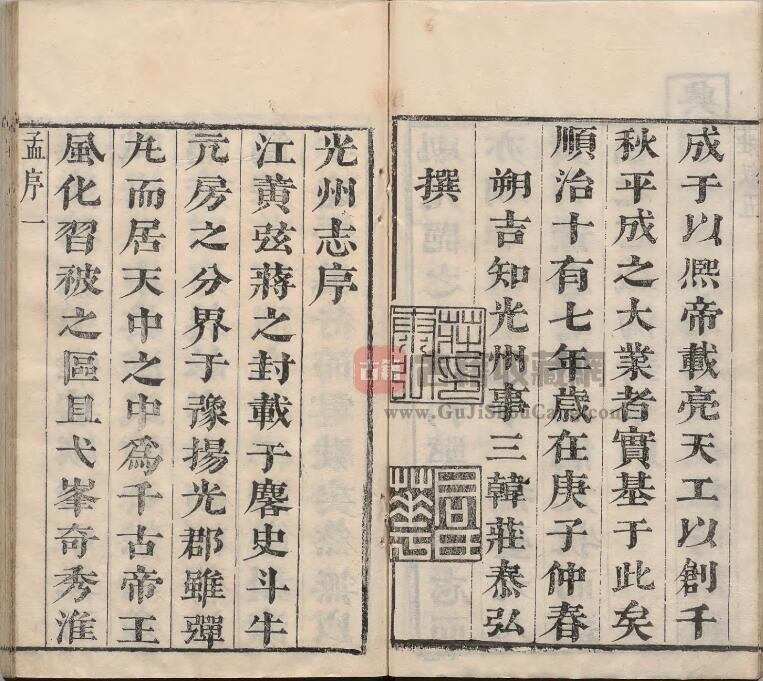 成于以熈帝載亮天工以創千
秋平成之大業者實基于此矣
順治十有七年歲在庚子仲春
朔吉知光州事三韓莊泰弘
撰
光州志序
江黄弦蔣之封載于麐史斗牛
元房之分界于豫揚光郡雖彈
九而居天中之中爲千古帝王
風化習被之區且弋峯奇秀淮
孟序一
古籍
www.GuJiShouCang.com